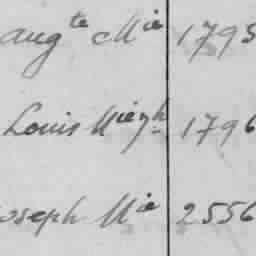 augte Mie 1795
Louis Miegh 1796
oseph Mie 2556